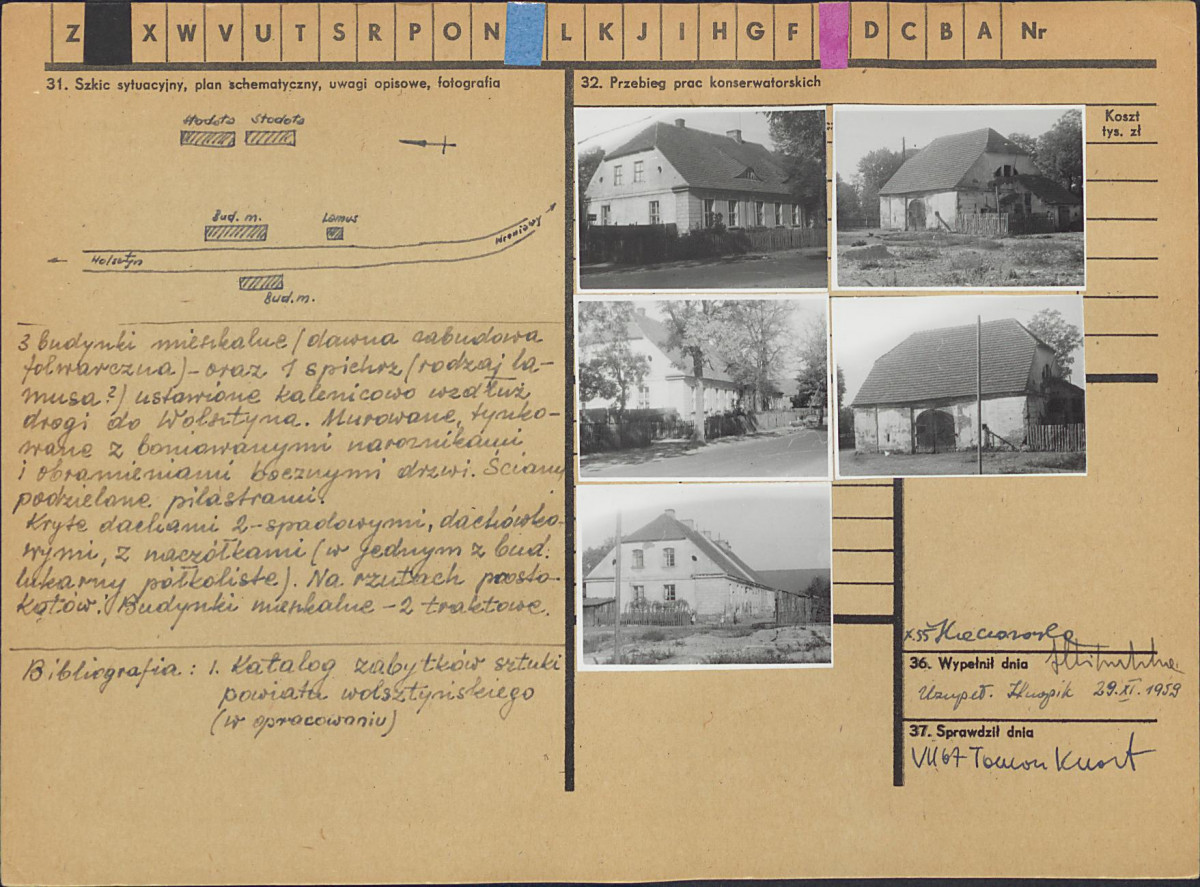 Z X W V U T S R P O N L K J I H G F D C B A Nr
31. Szkic sytuacyjny, plan schematyczny, uwagi opisowe, fotografia
Stodoła Stodoła
Bud. m. Lamus
Wolsztyn
Wroniawy
Bud. m.
3 budynki mieszkalne (dawna zabudowa
folwarczna) - oraz 1 spichrz (rodzaj la-
musa?) ustawione kalenicowo wzdłuż
drogi do Wolsztyna. Murowane, tynko-
wane z boniowanymi narożnikami
i obramieniami bocznymi drzwi. Ściany
podzielane pilastrami.
Kryte dachami 2-spadowymi, dachówko-
wymi, z naczółkami (w jednym z bud.
lukarny półkoliste). Na rzutach prosto-
kątów. Budynki mieszkalne - 2 traktowe.
Bibliografia: 1. Katalog zabytków sztuki
powiatu wolsztyńskiego
(w opracowaniu)
32. Przebieg prac konserwatorskich
Koszt
tys. zł
X.55
36. Wypełnił dnia
Uzupeł. 29.XI.1959
37. Sprawdził dnia
VII 67